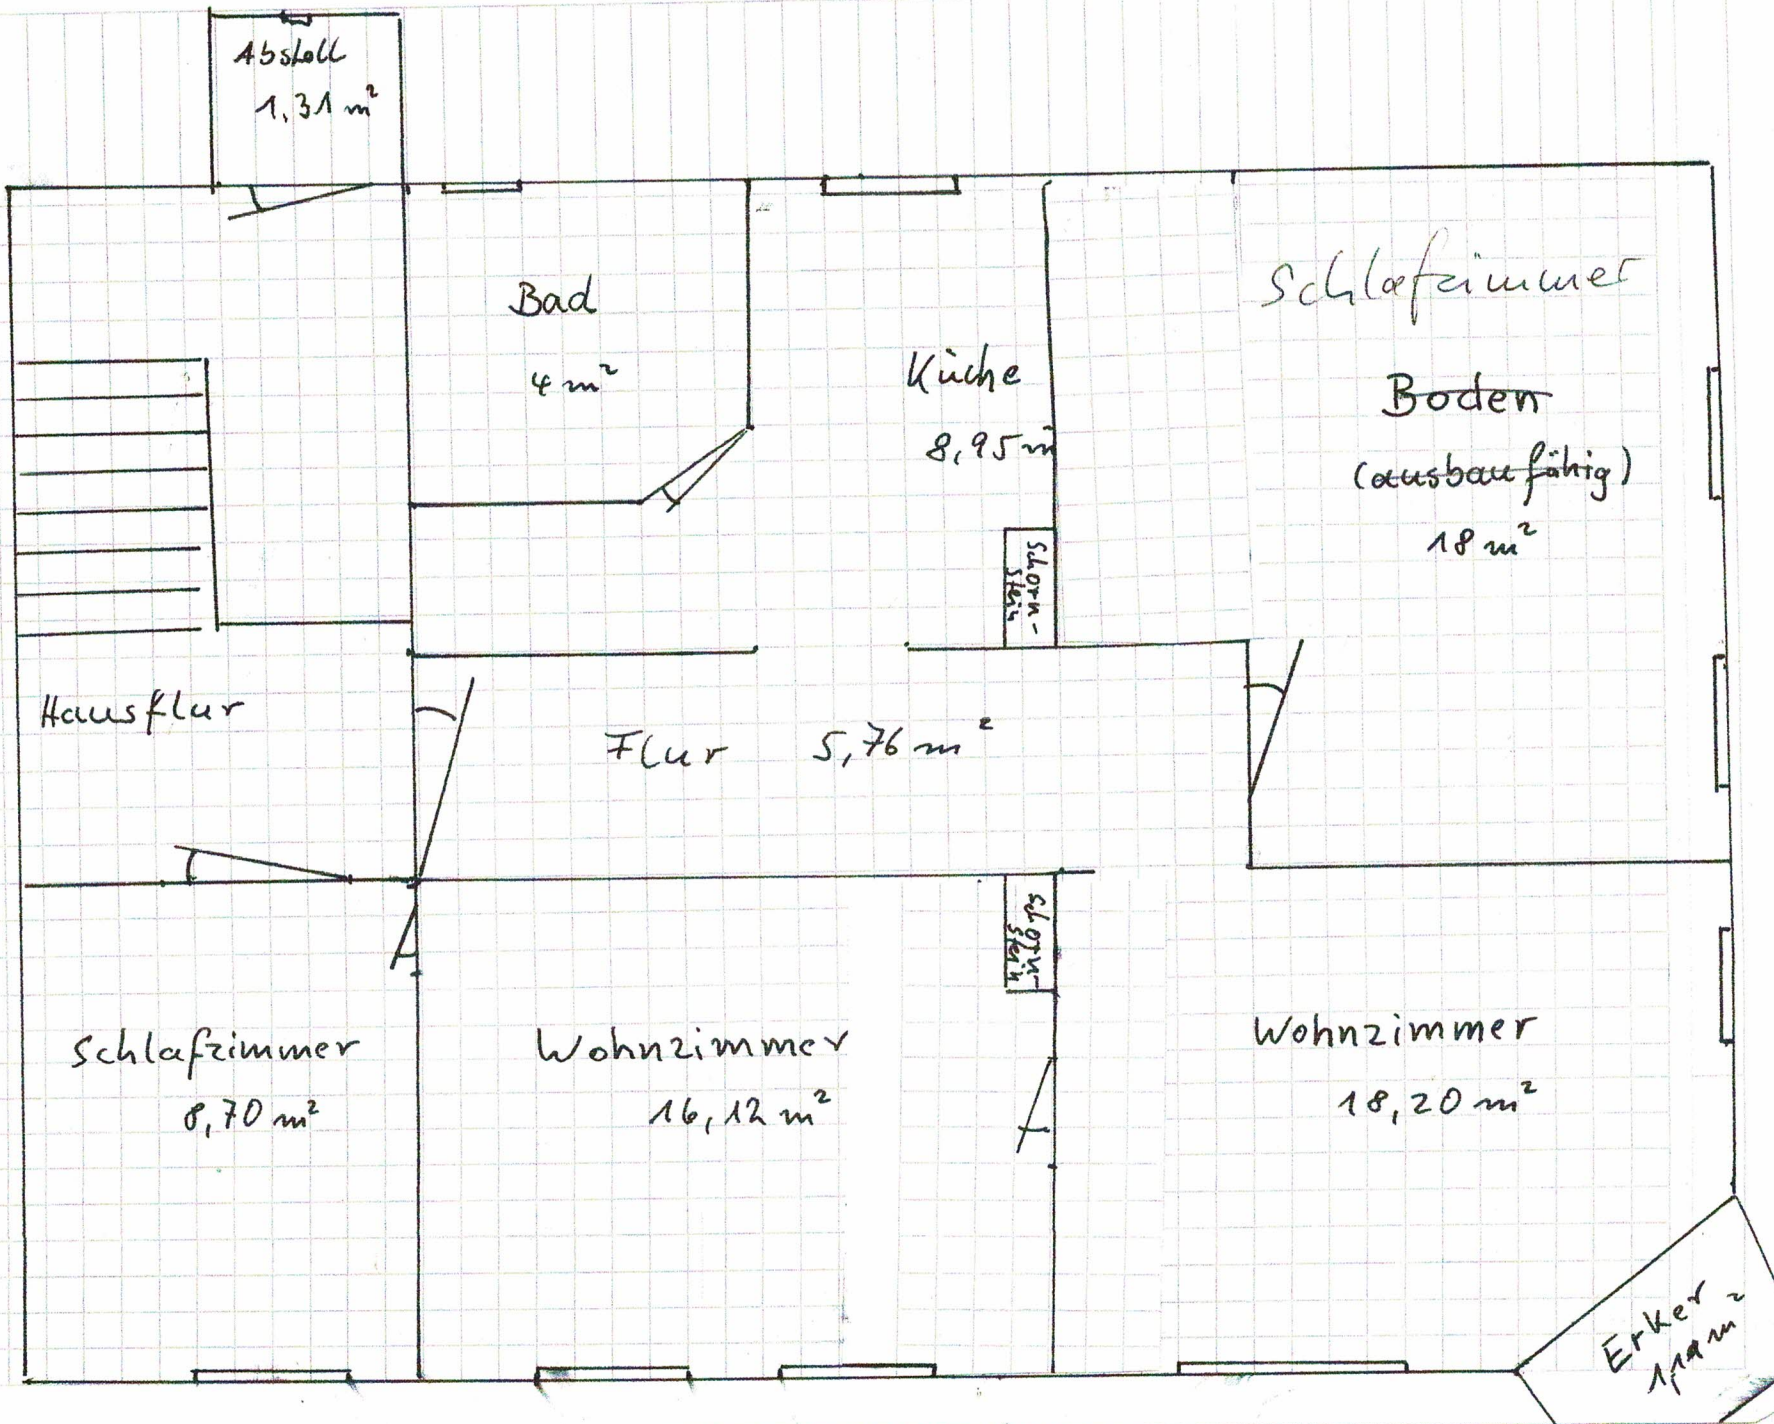 Abstell
1,31 m²
Bad
4 m²
Küche
8,95 m
Schlafzimmer
Boden
(ausbaufähig)
18 m²
Schorn-
stein
Hausflur
Flur 5,76 m²
Schorn-
stein
Schlafzimmer
8,70 m²
Wohnzimmer
16,12 m²
Wohnzimmer
18,20 m²
Erker
1,19 m²